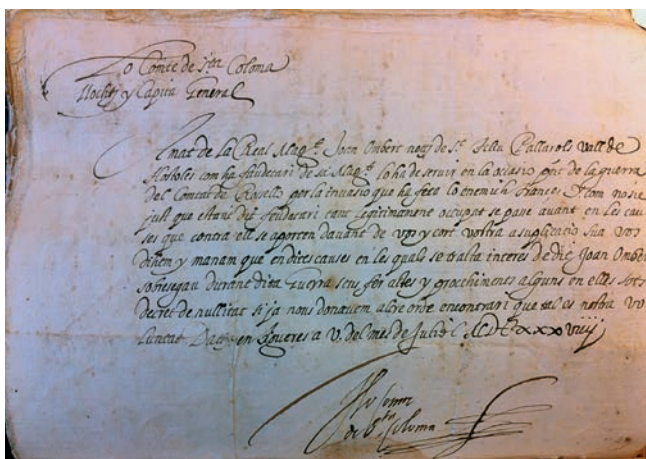 Lo Comte de Sta Coloma
Llochtt y Capita General
Amat de la Real Magt. Joan Ombert negt de St. Feliu Pallarols Vall de
Hostoles com ha feudetari de sa Magt. lo ha de servir en la ocasio pnt de la guerra
del Comtat de Rossello per la invasio que ha feta lo enemich frances. Y com no sie
just que estant dit feudetari tant legitimament occupat se pase avant en les cau
ses que contra ell se aporten davant de vos y cort vostra a suplicacio sua vos
dihem y manam que en dites causes en les quals se tracta interes de dit Joan Ombert
sobresegau durant dita Guerra sens fer altes y enochiments alguns en elles sots
decret de nullitat si ja nous donavem altre orde encontrari que tal es nostra vo
luntat Dat en Figueres a V. del mes de Juliol MDCxxxviiij
Lo Comte
de Sta Coloma